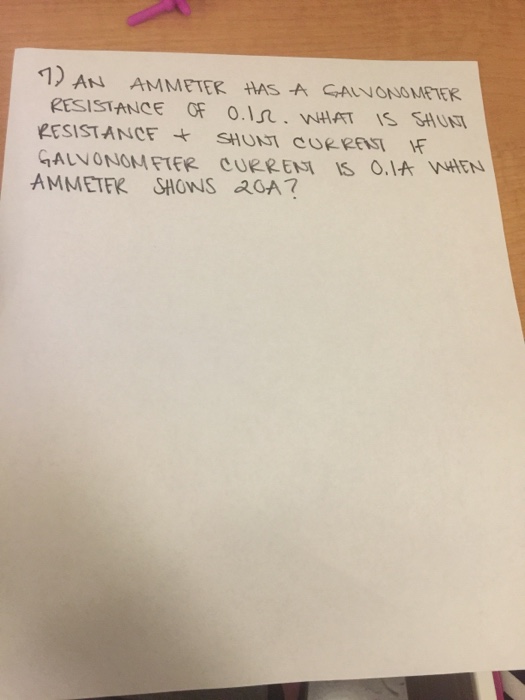 7) AN AMMETER HAS A GALVONOMETER
RESISTANCE OF 0.1Ω. WHAT IS SHUNT
RESISTANCE + SHUNT CURRENT IF
GALVONOMETER CURRENT IS 0.1A WHEN
AMMETER SHOWS 20A?